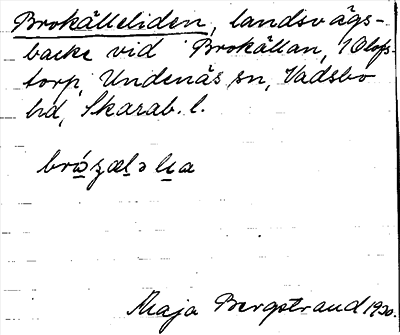 Brokälleliden, landsvägs-
backe vid Brokällan, 1 Olofs-
torp, Undenäs sn, Vadsbo
hd, Skarab. l.
Maja Bergstrand 1930.